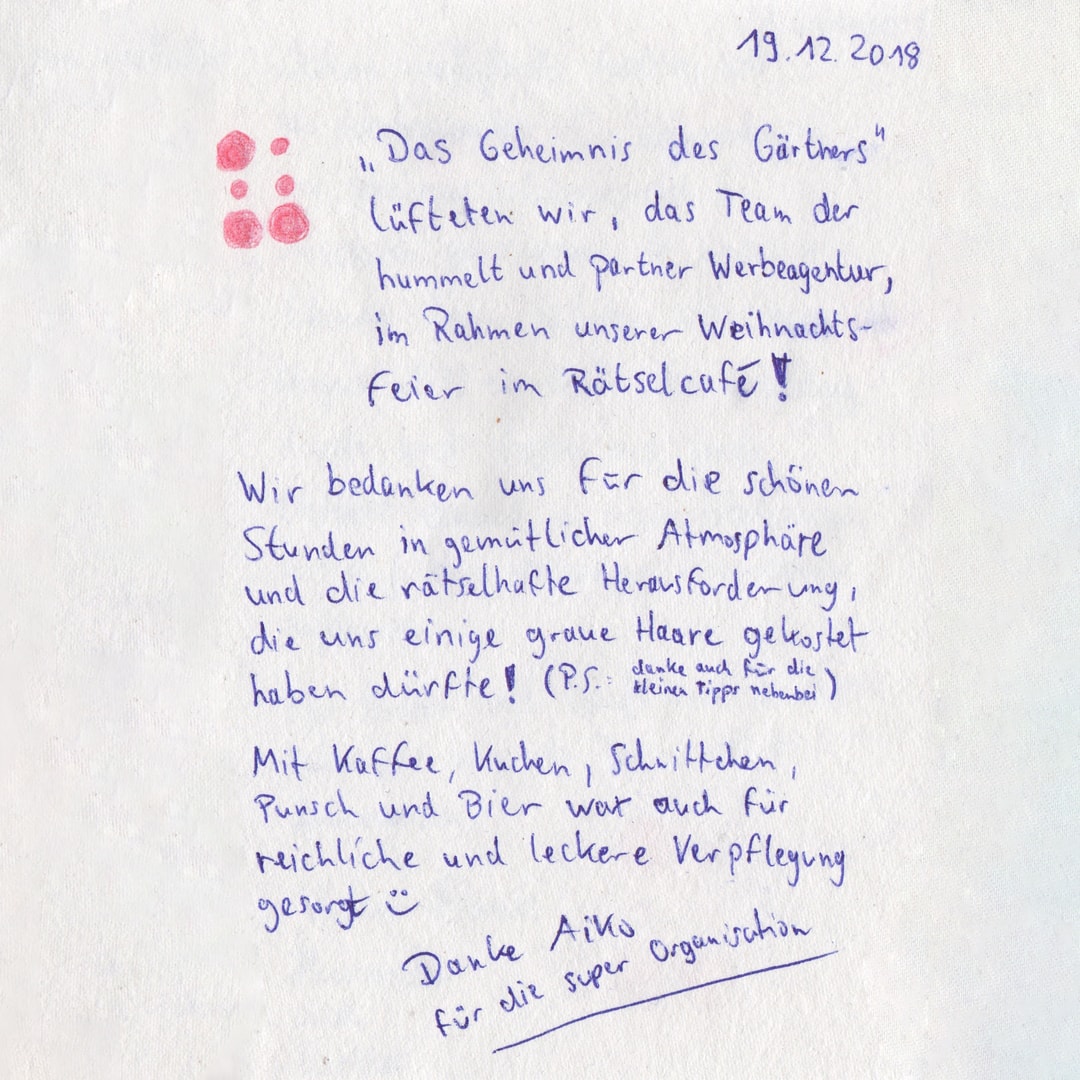 19.12.2018
„Das Geheimnis des Gärtners“
lüfteten wir, das Team der
hummelt und partner Werbeagentur,
im Rahmen unserer Weihnachts-
feier im Rätselcafé!
Wir bedanken uns für die schönen
Stunden in gemütlicher Atmosphäre
und die rätselhafte Herausforderung,
die uns einige graue Haare gekostet
haben dürfte! (P.S.: danke auch für die
kleinen Tipps nebenbei)
Mit Kaffee, Kuchen, Schnittchen,
Punsch und Bier war auch für
reichliche und leckere Verpflegung
gesorgt :)
Danke Aiko
für die super Organisation